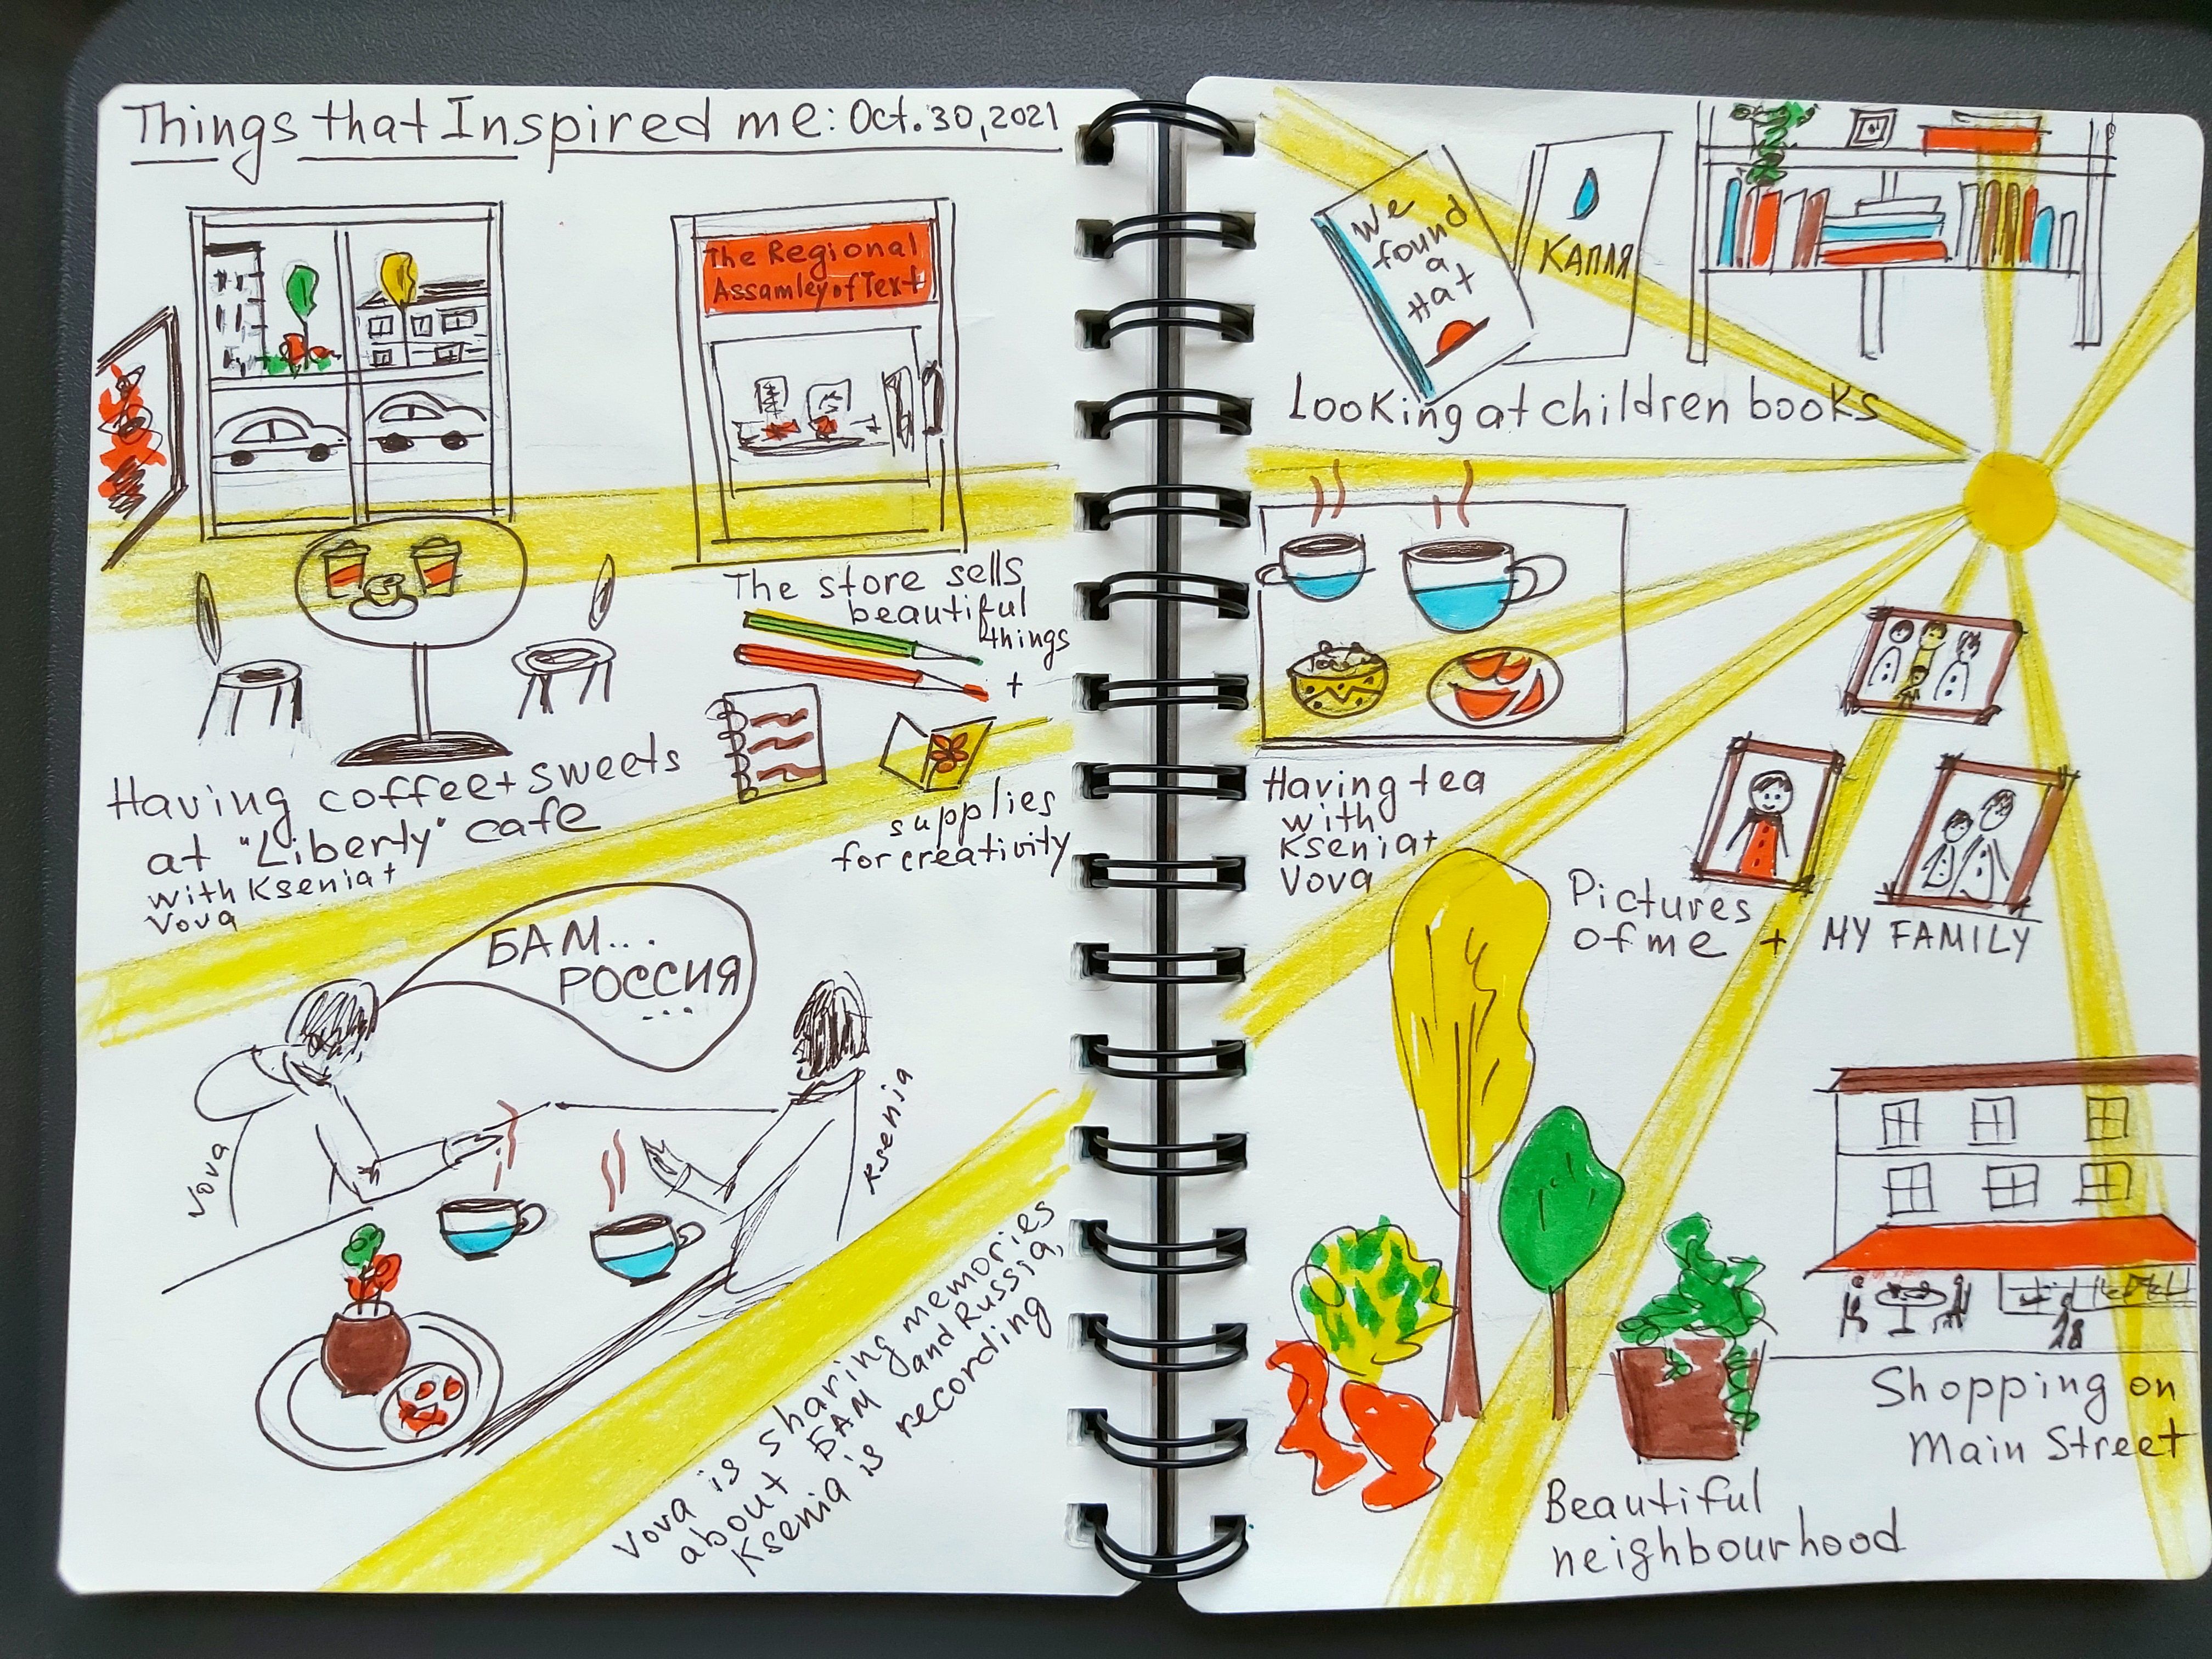 Things that Inspired me: Oct. 30, 2021
The Regional
Assamley of Text
The store sells
beautiful
things
+
supplies
for creativity
Having coffee + sweets
at "Liberty" cafe
with Ksenia +
Vova
БАМ...
РОССИЯ
...
Vova
Ksenia
Vova is sharing memories
about БАМ and Russia,
Ksenia is recording
We
found
a
Hat
КАПЛЯ
Looking at children books
Having tea
with
Ksenia +
Vova
Pictures
of me + MY FAMILY
Shopping on
Main Street
Beautiful
neighbourhood